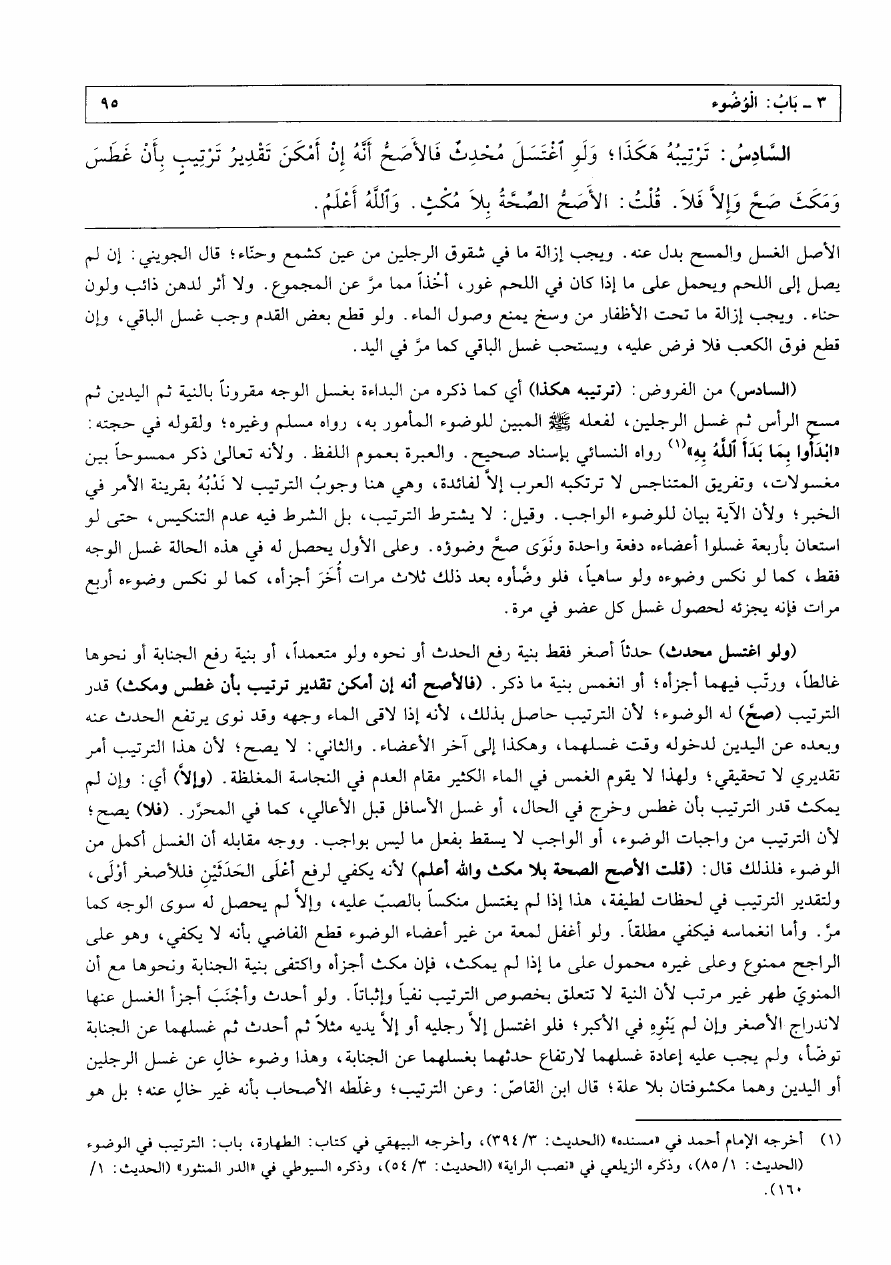 ٣ ـ بَابُ: الْوُضُوء ٩٥
السَّادِسُ: تَرْتِيبُهُ هَكَذَا؛ وَلَوِ ٱغْتَسَلَ مُحْدِثٌ فَالأَصَحُّ أَنَّهُ إِنْ أَمْكَنَ تَقْدِيرُ تَرْتِيبٍ بِأَنْ غَطَسَ
وَمَكَثَ صَحَّ وَإِلاَّ فَلاَ. قُلْتُ: الأَصَحُّ الصِّحَّةُ بِلاَ مُكْثٍ. وَٱللَّهُ أَعْلَمُ.
الأصل الغسل والمسح بدل عنه. ويجب إزالة ما في شقوق الرجلين من عين كشمع وحنّاء؛ قال الجويني: إن لم
يصل إلى اللحم ويحمل على ما إذا كان في اللحم غور، أخْذاً مما مرَّ عن المجموع. ولا أثر لدهن ذائب ولون
حناء. ويجب إزالة ما تحت الأظفار من وسخ يمنع وصول الماء. ولو قطع بعض القدم وجب غسل الباقي، وإن
قطع فوق الكعب فلا فرض عليه، ويستحب غسل الباقي كما مرَّ في اليد.
(السادس) من الفروض: (ترتيبه هكذا) أي كما ذكره من البداءة بغسل الوجه مقروناً بالنية ثم اليدين ثم
مسح الرأس ثم غسل الرجلين، لفعله ﷺ المبين للوضوء المأمور به، رواه مسلم وغيره؛ ولقوله في حجته:
«ابْدَأُوا بِمَا بَدَأَ ٱللَّهُ بِهِ»(١) رواه النسائي بإسناد صحيح. والعبرة بعموم اللفظ. ولأنه تعالىٰ ذكر ممسوحاً بين
مغسولات، وتفريق المتجانس لا ترتكبه العرب إلاَّ لفائدة، وهي هنا وجوبُ الترتيب لا نَدْبُهُ بقرينة الأمر في
الخبر؛ ولأن الآية بيان للوضوء الواجب. وقيل: لا يشترط الترتيب، بل الشرط فيه عدم التنكيس، حتى لو
استعان بأربعة غسلوا أعضاءه دفعة واحدة ونَوَى صحَّ وضوؤه. وعلى الأول يحصل له في هذه الحالة غسل الوجه
فقط، كما لو نكس وضوءه ولو ساهياً، فلو وضَّأوه بعد ذلك ثلاث مرات أُخَرَ أجزأه، كما لو نكس وضوءه أربع
مرات فإنه يجزئه لحصول غسل كل عضو في مرة.
(ولو اغتسل محدث) حدثاً أصغر فقط بنية رفع الحدث أو نحوه ولو متعمداً، أو بنية رفع الجنابة أو نحوها
غالطاً، ورتّب فيهما أجزأه؛ أو انغمس بنية ما ذكر. (فالأصح أنه إن أمكن تقدير ترتيب بأن غطس ومكث) قدر
الترتيب (صحَّ) له الوضوء؛ لأن الترتيب حاصل بذلك، لأنه إذا لاقى الماء وجهه وقد نوى يرتفع الحدث عنه
وبعده عن اليدين لدخوله وقت غسلهما، وهكذا إلى آخر الأعضاء. والثاني: لا يصح؛ لأن هذا الترتيب أمر
تقديري لا تحقيقي؛ ولهذا لا يقوم الغمس في الماء الكثير مقام العدم في النجاسة المغلظة. (وإلاَّ) أي: وإن لم
يمكث قدر الترتيب بأن غطس وخرج في الحال، أو غسل الأسافل قبل الأعالي، كما في المحرَّر. (فلا) يصح؛
لأن الترتيب من واجبات الوضوء، أو الواجب لا يسقط بفعل ما ليس بواجب. ووجه مقابله أن الغسل أكمل من
الوضوء فلذلك قال: (قلت الأصح الصحة بلا مكث والله أعلم) لأنه يكفي لرفع أعْلَى الحَدَثَيْنِ فللأصغر أوْلَى،
ولتقدير الترتيب في لحظات لطيفة، هذا إذا لم يغتسل منكساً بالصبّ عليه، وإلاَّ لم يحصل له سوى الوجه كما
مرَّ. وأما انغماسه فيكفي مطلقاً. ولو أغفل لمعة من غير أعضاء الوضوء قطع القاضي بأنه لا يكفي، وهو على
الراجح ممنوع وعلى غيره محمول على ما إذا لم يمكث، فإن مكث أجزأه واكتفى بنية الجنابة ونحوها مع أن
المنويّ طهر غير مرتب لأن النية لا تتعلق بخصوص الترتيب نفياً وإثباتاً. ولو أحدث وأجْنَبَ أجزأ الغسل عنها
لاندراج الأصغر وإن لم يَنْوِهِ في الأكبر؛ فلو اغتسل إلاَّ رجليه أو إلاَّ يديه مثلاً ثم أحدث ثم غسلهما عن الجنابة
توضّأ، ولم يجب عليه إعادة غسلهما لارتفاع حدثهما بغسلهما عن الجنابة، وهذا وضوء خالٍ عن غسل الرجلين
أو اليدين وهما مكشوفتان بلا علة؛ قال ابن القاصّ: وعن الترتيب؛ وغلّطه الأصحاب بأنه غير خالٍ عنه؛ بل هو
(١) أخرجه الإمام أحمد في «مسنده» (الحديث: ٣/ ٣٩٤)، وأخرجه البيهقي في كتاب: الطهارة، باب: الترتيب في الوضوء
(الحديث: ١/ ٨٥)، وذكره الزيلعي في «نصب الراية» (الحديث: ٣/ ٥٤)، وذكره السيوطي في «الدر المنثور» (الحديث: ١/
١٦٠).